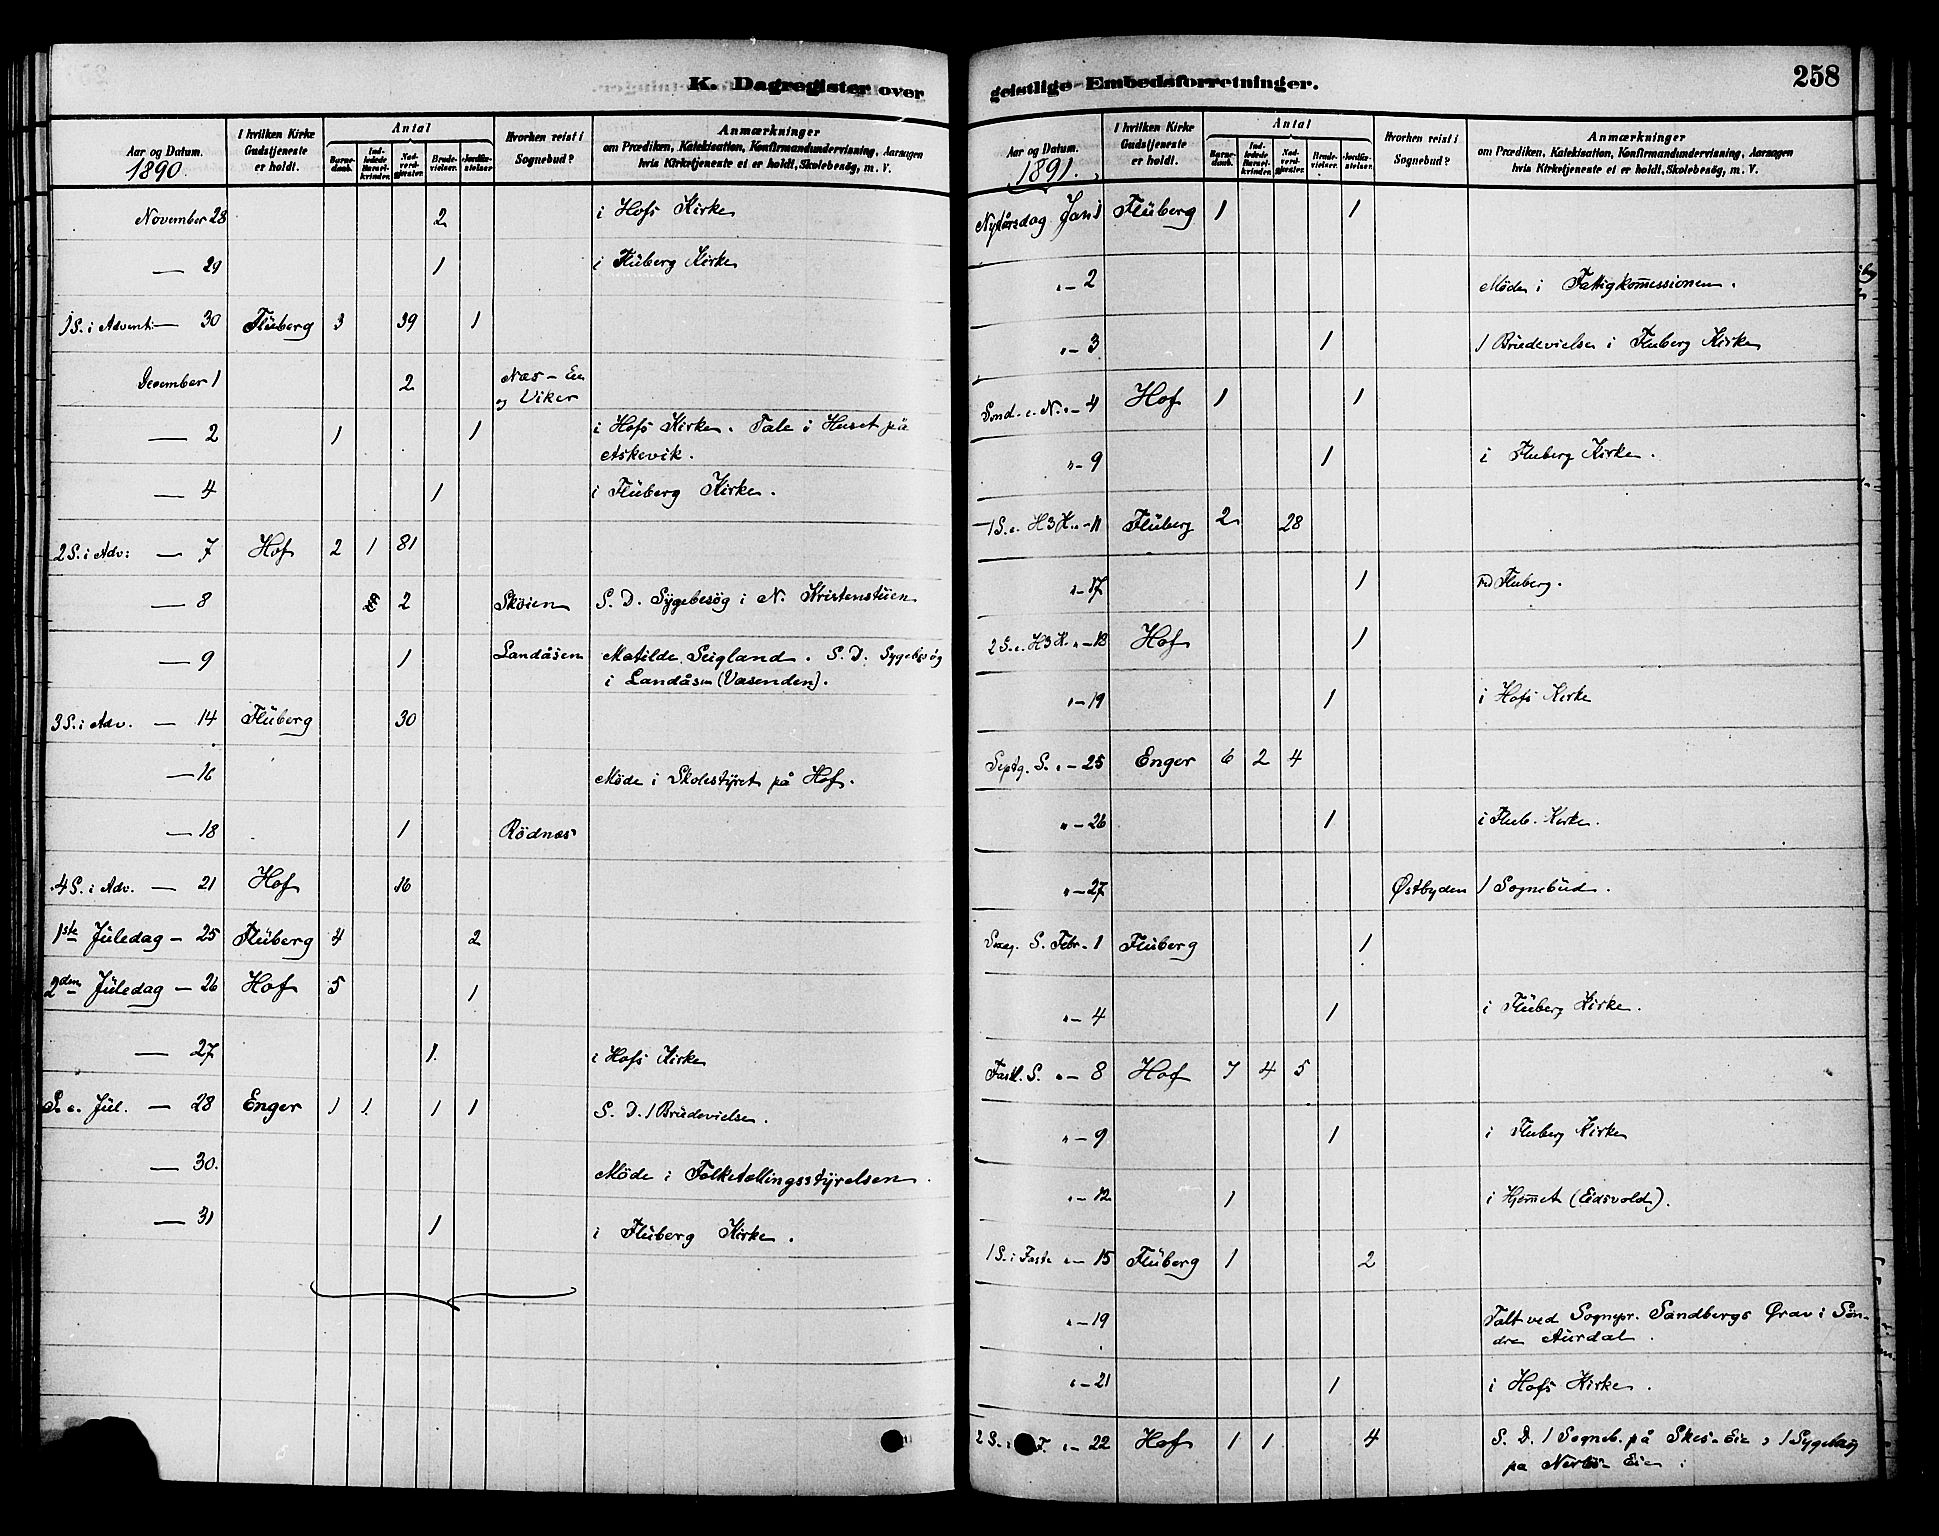 K. Dagregister over
Aar og Datum.
1890.
I hvilken Kirke Gudstjeneste er holdt.
Antal
Barnedaab.
Indledede Barselkvinder.
Nadverdgjæster.
Brudevielser.
Jordfæstelser
Hvorhen reist i Sognebud?
Anmærkninger
om Prædiken, Katekisation, Konfirmandundervisning, Aarsagen
hvis Kirketjeneste ei er holdt, Skolebesøg, m. V.
November 28 2 i Hofs Kirke
— 29 1 i Flüberg Kirke
1 S. i Advent. — 30 Flüberg 3 39 1
December 1 2 Næs - Eie
og Viker
— 2 1 1 i Hofs Kirke. Tale i Huset på
Askevik.
— 4 1 i Flüberg Kirke.
2 S. i Adv: — 7 Hof 2 1 81
— 8 2 Skoien S. D. Sygebesög i N. Kristenstüen
— 9 1 Landåsen Matilde Seigland. S. D. Sygebesög
i Landåsen (Vasenden).
3 S. i Adv. — 14 Flüberg 30
— 16 Møde i Skolestÿret på Hof.
— 18 1 Rödnæs
4 S. i Adv. — 21 Hof 16
1ste Jüledag — 25 Flüberg 4 2
2den Jüledag — 26 Hof 5 1
— 27 1. i Hofs Kirke
S. e. Jül. — 28 Enger 1 1. 1 1 S. D. 1 Brüdevielse.
— 30. Møde i Folketællingsstÿrelsen.
— 31 1 i Flüberg Kirke.
geistlige Embedsforretninger.
258
Aar og Datum.
1891.
I hvilken Kirke Gudstjeneste er holdt.
Antal
Barnedaab.
Indledede Barselkvinder.
Nadverdgjæster.
Brudevielser.
Jordfæstelser
Hvorhen reist i Sognebud?
Anmærkninger
om Prædiken, Katekisation, Konfirmandundervisning, Aarsagen
hvis Kirketjeneste ei er holdt, Skolebesøg, m. V.
Nytårsdag Jan 1 Flüberg 1 1
" — 2 Møde i Fattigkom̅issionen.
" — 3 1 1 Brüdevielse i Fluberg Kirke
Sönd. e. N. " — 4 Hof 1 1
" — 9 1 i Fluberg Kirke.
1 S. e. H3K. " — 11 Flüberg 2 28
" — 17 1 ved Fluberg.
2 S. e. H3K. " — 18 Hof 1
" — 19 1 i Hofs Kirke
Septg. S. " — 25 Enger 6 2 4
" — 26 1 i Flub. Kirke.
" — 27 Østbyden 1 Sognebüd.
Sexag. S. Febr. 1 Flüberg 1
" — 4 1 i Flüberg Kirke.
Fastl. S. " — 8 Hof 7 4 5
" — 9 1 i Fluberg Kirke
" — 12 1 i Hjem̅et (Eidsvold).
1 S. i Faste " — 15 Flüberg 1 2
" — 19 Talt ved Sognepr. Sandbergs Grav i Søn-
dre Aurdal.
" — 21 1 i Hofs Kirke.
2 S. i F. " — 22 Hof 1 1 4 S. D. 1 Sogneb. på Eie 1 Sygebesøg
på Eie